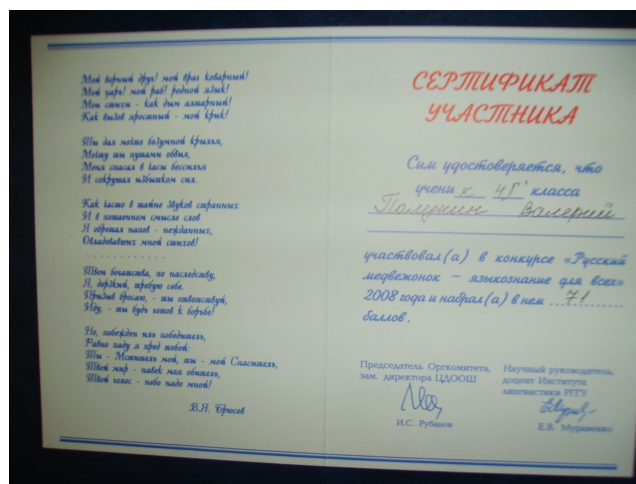 Мой верный друг! мой враг коварный!
Мой царь! мой раб! родной язык!
Мои стихи - как дым алтарный!
Как вызов яростный - мой крик!
Ты дал мечте безумной крылья,
Мечту ты путами обвил,
Меня спасал в часы бессилья
И сокрушал избытком сил.
Как часто в тайне звуков странных
И в потаенном смысле слов
Я обретал напев - нежданных,
Овладевавших мной стихов!
. . . . . . . . . . . .
Твои богатства, по наследству,
Я, дерзкий, требую себе.
Призыв бросаю, - ты ответствуй,
Иду, - ты будь готов к борьбе!
Но, побежден иль победитель,
Равно паду я пред тобой:
Ты - Мститель мой, ты - мой Спаситель,
Твой мир - навек моя обитель,
Твой голос - небо надо мной!
В.Я. Брюсов
СЕРТИФИКАТ
УЧАСТНИКА
Сим удостоверяется, что
учени к 4 Г' класса
Полукин Валерий
участвовал(а) в конкурсе «Русский
медвежонок — языкознание для всех»
2008 года и набрал(а) в нем 71
баллов.
Председатель Оргкомитета,
зам. директора ЦДООШ
И.С. Рубанов
Научный руководитель,
доцент Института
лингвистики РГГУ
Е.В. Муравенко